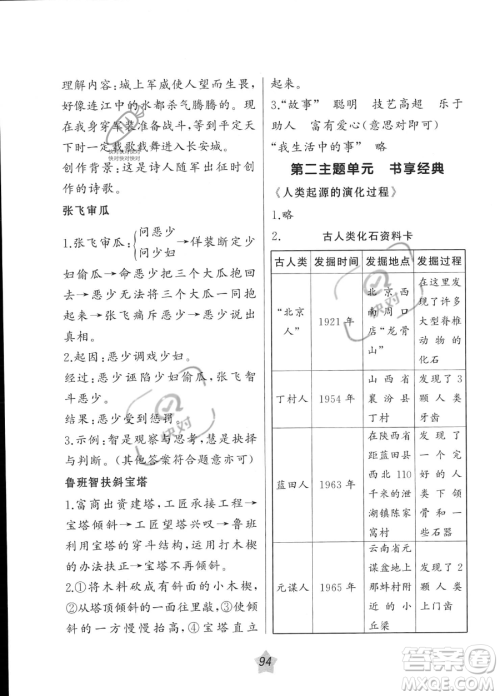 理解内容：城上军威使人望而生畏，
好像连江中的水都杀气腾腾的。
我随身穿军装准备战斗，等到平定
一天我歌我舞进入长安城。
创作背景：这是诗人随军出征时创作
的诗歌。
张飞审瓜
1.张飞审瓜{问恶少
问少妇}→佯装断定少
妇偷瓜→恶少把三个大瓜抱回
去→恶少无法把三个大瓜抱起
来→张飞痛斥恶少→恶少说出
真相。
2.起因：恶少调戏少妇。
经过：恶少诬陷少妇偷瓜，张飞智
斗恶少。
结果：恶少受到惩罚。
3.示例：智是观察与思考，慧是说
与做。(其他答案符合题意亦可)
鲁班智扶斜宝塔
1.富商出资建塔，工匠尽兴建造→
宝塔倾斜→工匠望塔兴叹→鲁班
利用宝塔的穿斗结构，采用打木楔
的办法扶正→宝塔不再倾斜。
2.①将木料砍成有斜面的小木楔，
从塔顶倾斜的一边②③④依次敲
进去 ④宝塔直立
起来。
3.“故事” 聪明 技艺高超 乐于
助人 富有爱心(意思对即可)
“我生活中的事” 略
第二主题单元 书享经典
《人类起源的演化过程》
1.略
2. 古人类化石资料卡
古人类 发掘时间 发掘地点 发掘过程
“北京人” 1921年 北京西南周口店“龙骨山” 在这里发现了许多大型脊椎动物的化石
丁村人 1954年 山西省襄汾县丁村 发现了3颗人类牙齿
蓝田人 1963年 在陕西省西安北110千米处的蓝田县泄湖镇陈家村 发现了一个人类下颌骨
元谋人 1965年 云南省元谋盆地上那蚌村附近的小丘梁 发现了2颗人类门齿
94